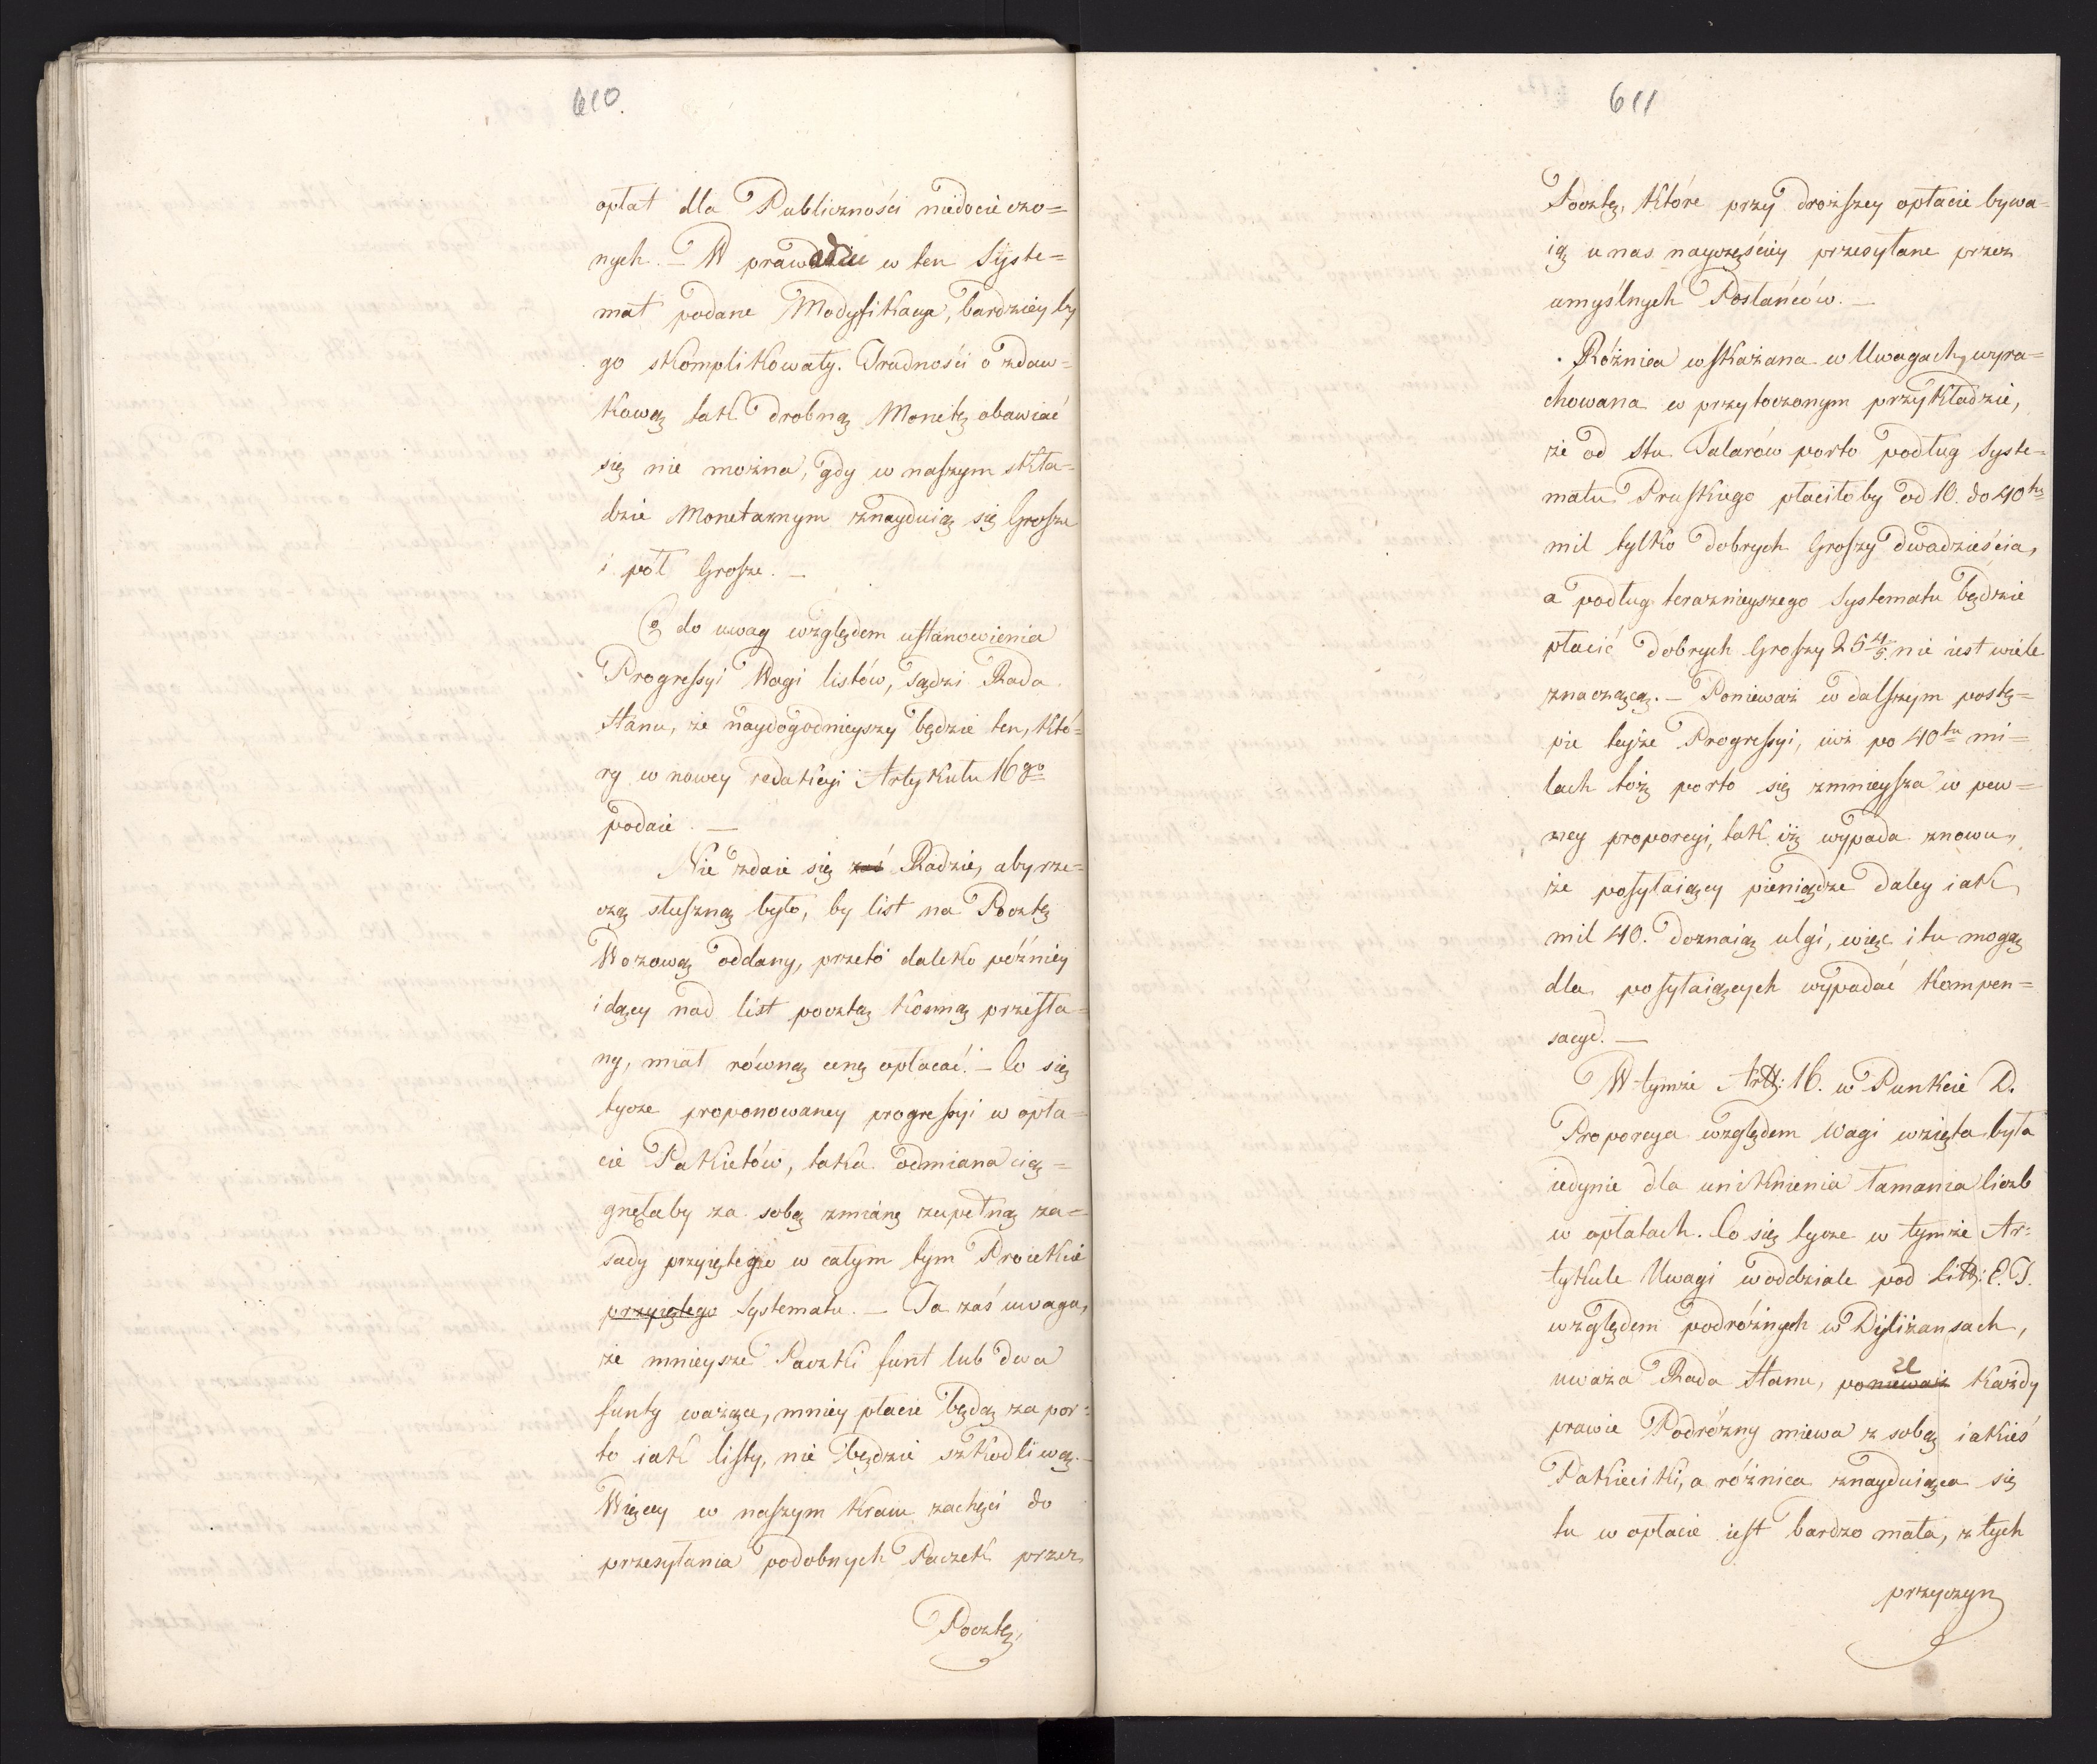 610.
opłat dla Publiczności niedociecżo=
nych. — W prawdzie w ten Syste=
mat podane Modyfikacye, bardziey by
go skomplikowały. Trudności o zdaw=
kową tak drobną Monetę obawiać
się nie można, gdy w naszym skła=
dzie Monetarnym znayduią się Grosze
i pół Grosze. —
Co do uwag względem ustanowienia
Progressyi Wagi listów, sądzi Rada
Stanu, że naydogodnieyszy będzie ten, któ=
ry w nowey redakcyi Artykułu 16go
podaie. —
Nie zdaie się zaś Radzie, aby rze=
czą słuszną było, by list na Pocztę
Wozową oddany, przeto daleko późniey
idący nad list pocztą konną przesła=
ny, miał równą cenę opłacać. — Co się
tycze proponowaney progressyi w opła=
cie Pakietów, taka odmiana cią=
gnęłaby za sobą zmianę zupełną za=
sady przyiętego w całym tym Proiekcie
przyiętego Systematu. — Ta zaś uwaga,
że mnieysze Paczki funt lub dwa
funty ważące, mniey płacić będą za por=
to iak listy, nie będzie szkodliwą. —
Więcey w naszym kraiu zachęci do
przesyłania podobnych Paczek przez
Pocztę,
611
Pocztę, które przy droższey opłacie bywa=
ią u nas nayczęściey przesyłane przez
umyślnych Posłańców. —
Różnica wskazana w Uwagach, wyra=
chowana w przytoczonym przykładzie,
że od stu Talarów porto podług Syste=
matu Pruskiego płaciłoby od 10. do 40tu
mil tylko dobrych Groszy dwadzieścia,
a podług teraznieyszego Systematu będzie
płacić dobrych Groszy 25 4/5. nie iest wiele
znaczącą. — Ponieważ w dalszym postę=
pie teyże Progressyi, iuż po 40tu mi=
lach toż porto się zmnieysza w pew=
ney proporcyi, tak iż wypada znowu,
że posyłaiący pieniądze daley iak
mil 40. doznaią ulgi, więc i tu mogą
dla posyłaiących wypadać kompen=
sacye. —
W tymże Art: 16. w Punkcie D.
Proporcya względem Wagi wzięta była
iedynie dla uniknienia łamania liczb
w opłatach. Co się tycze w tymże Ar=
tykule Uwagi w oddziale pod Litt: E. I.
względem podróżnych w Dyliżansach,
uważa Rada Stanu, ponieważ że każdy
prawie Podróżny miewa z sobą iakieś
Pakieciki, a różnica znayduiąca się
tu w opłacie iest bardzo mała, z tych
przyczyn